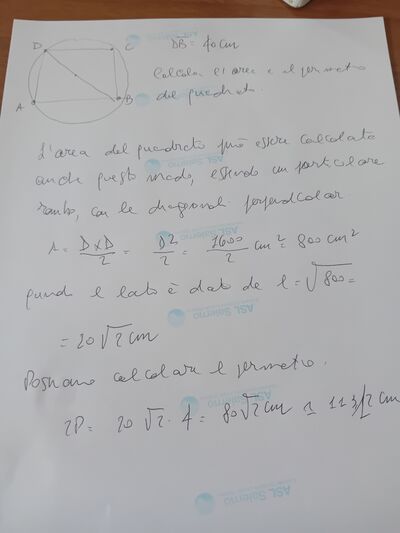 D C DB = 40 cm
Calcolare l'area e il perimetro
A B del quadrato.
L'area del quadrato può essere calcolata
anche questo modo, essendo un particolare
rombo, con le diagonali perpendicolari
A = D x D / 2 = D2 / 2 = 1600 / 2 cm2 = 800 cm2
quindi il lato è dato da l = √800 =
= 20 √2 cm
Possiamo calcolare il perimetro.
2P = 20 √2 · 4 = 80√2 cm ≃ 113,12 cm
ASL Salerno
ASL Salerno
ASL Salerno
ASL Salerno